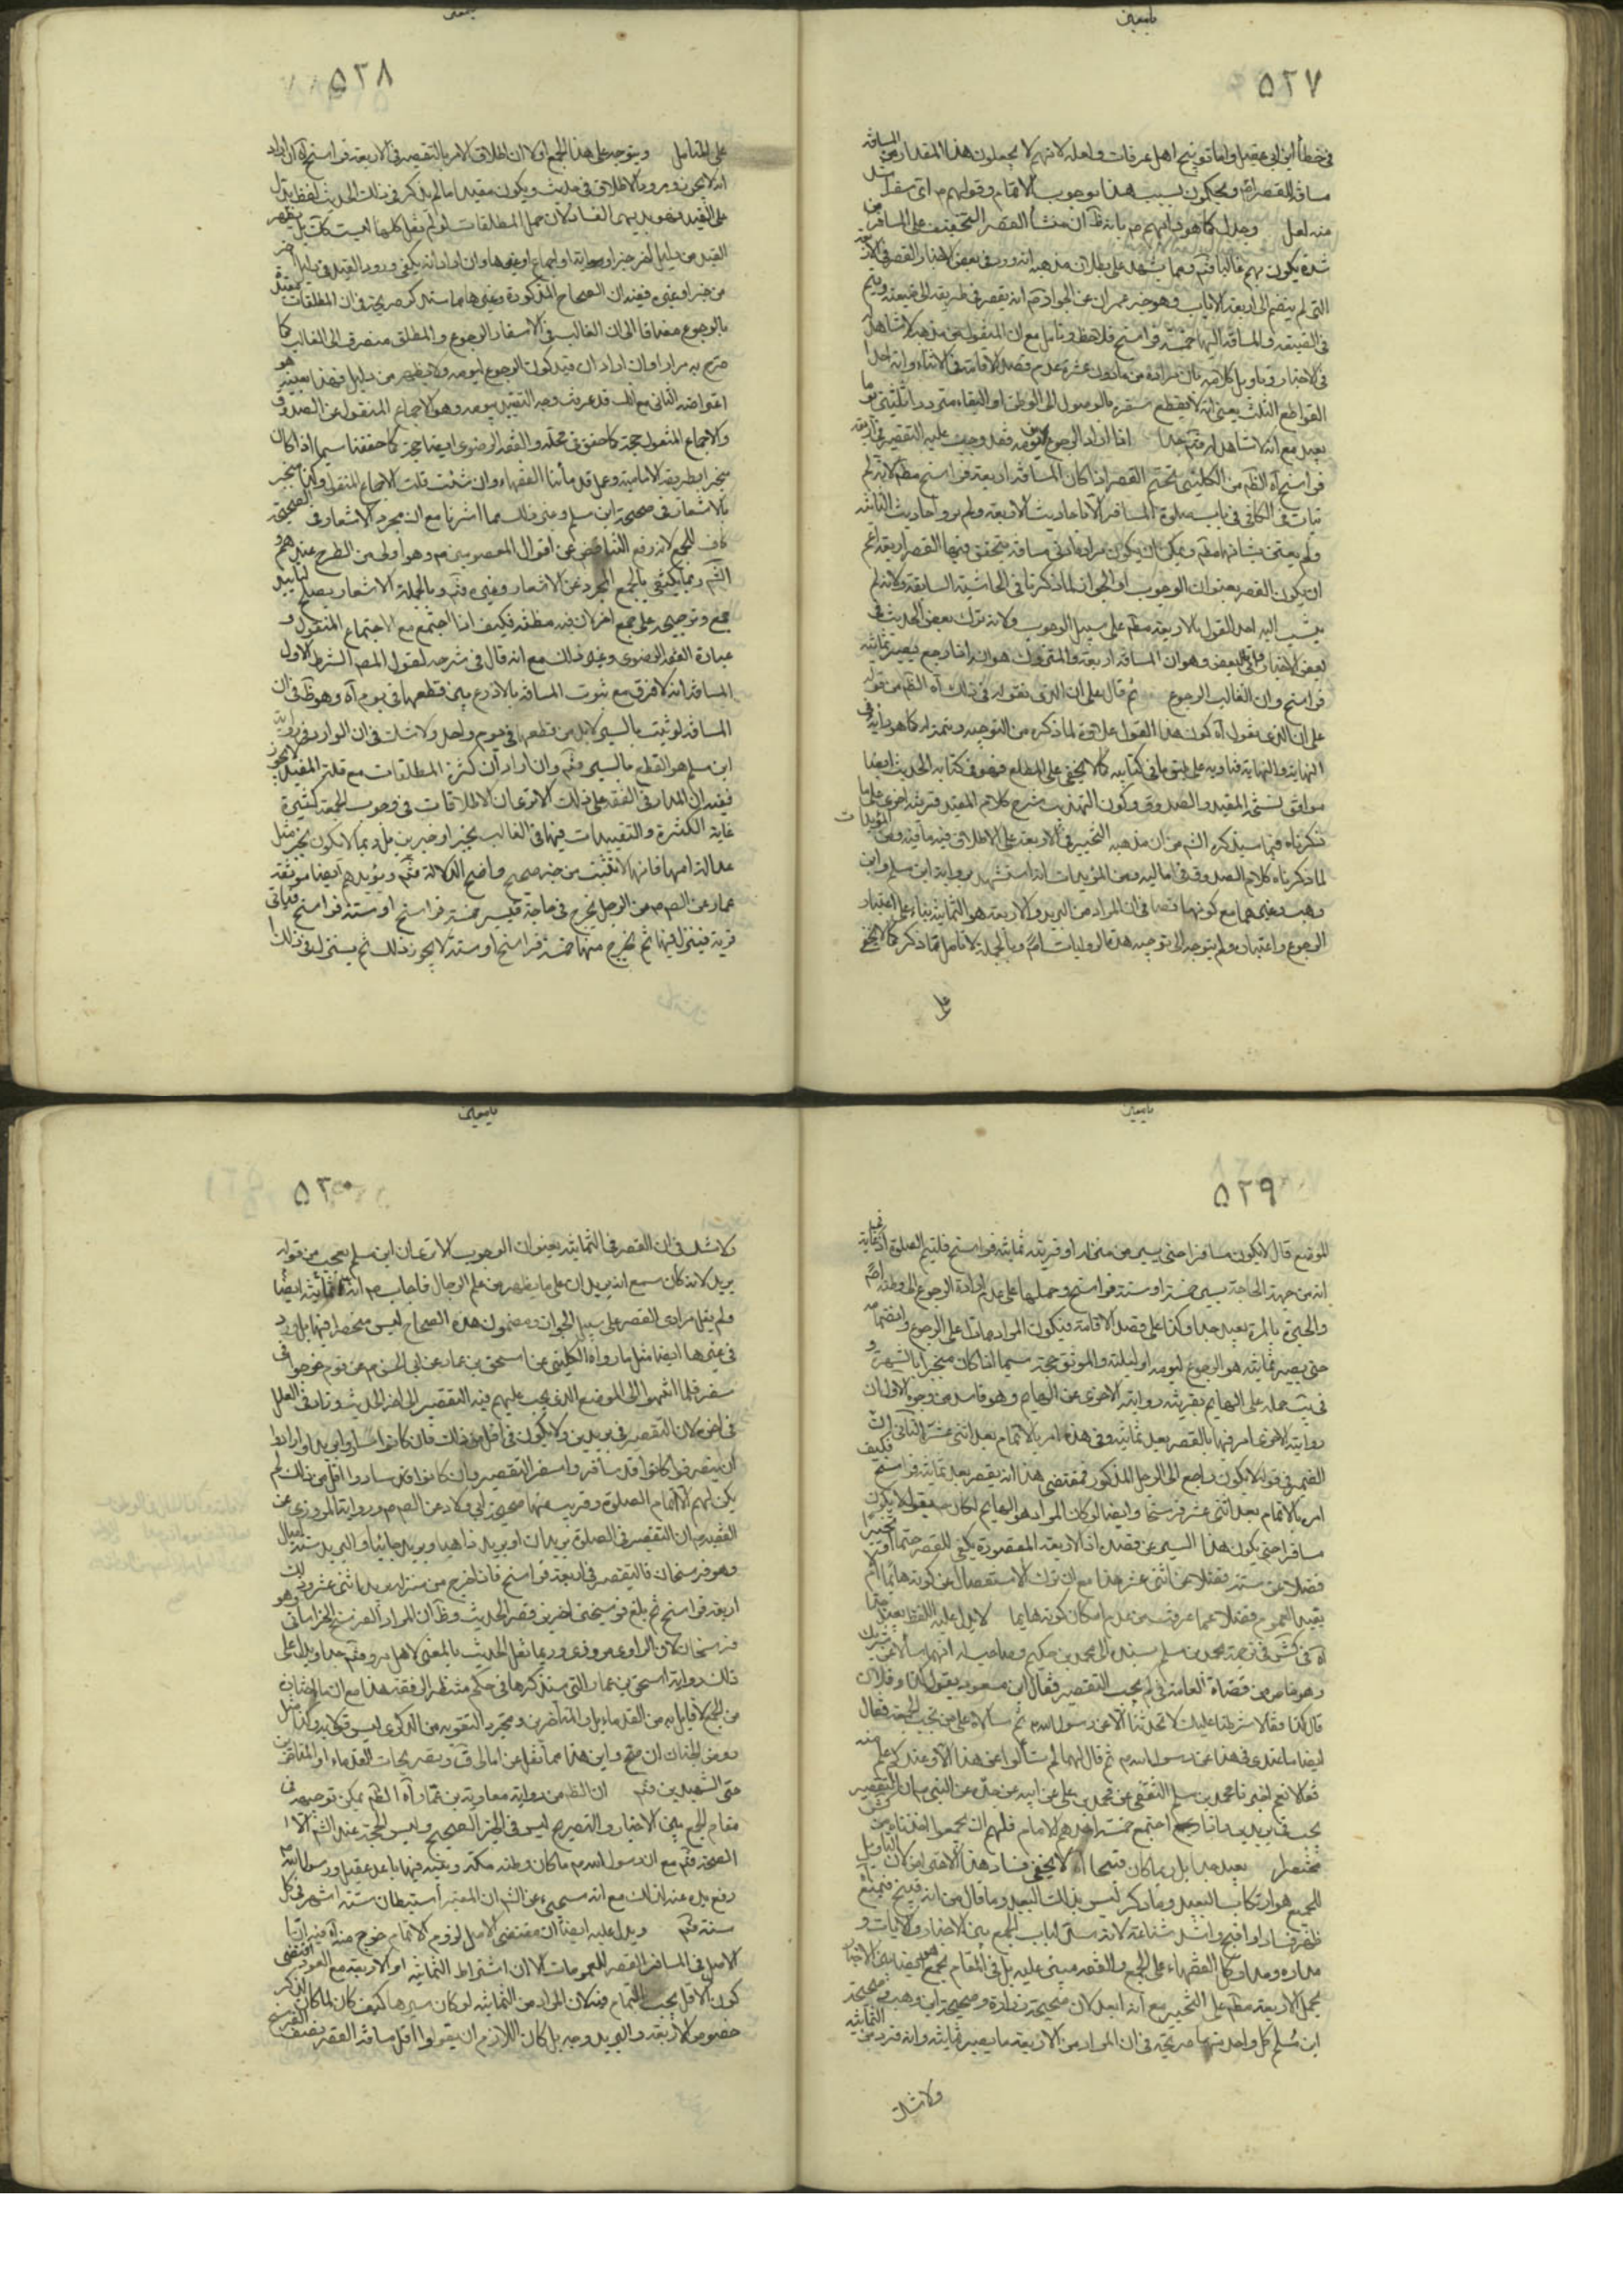 ٥٢٧
في خطأ ابن ابي عقيل واما توبيخ اهل عرفات فلعله لانهم لا يجعلون هذا المقدار من المسافة
مسافة للقصر اصلا ويحكمون بسبب هذا بوجوب الاتمام وقولهم اي سفر اشد
منه لعل كما هو منشأ القصر التخفيف على المسافر
شدة يكون بهم غالبا فتم ومما يشهد على بطلان مذهبه انه ورد في بعض الاخبار القصر في الاربعة
التي لم ينضم الى اربعة الاياب وهو خبر عمران عن الجواد انه يقصر في طريقه الى ضيعته ويتم
في الضيعة والمسافة اليها خمسة فراسخ فلاحظ وتامل مع ان المنقول
في الاخبار وتاويل كلامه بان مراده من مادون عشرة عدم قصد الاقامة في الاثناء وانه احد
القواطع الثلث يعني انه لا ينقطع سفره بالوصول الى الوطن او البقاء مترددا ثلثين يوما
بعيد مع انه لا شاهد له فتم جدا اذا اراد الرجوع ليومه فقد وجب عليه التقصير في اربعة
فراسخ آه الظم من الكليني تحتم القصر اذا كان المسافة اربعة فراسخ مطم لانه لم
يات في الكافي في باب صلوة المسافر الا باحاديث الاربعة ولم يورد احاديث الثمانية
ولم يعتن بشانها مطم ويمكن ان يكون مراده ادنى مسافة يتحقق فيها القصر اربعة اعم
ان يكون القصر بعنوان الوجوب او الجواز لما ذكرنا في الحاشية السابقة ولانه لم
ينسب اليه احد القول بالاربعة مطم على سبيل الوجوب ولانه ترك بعض الحديث في
بعض الاخبار البعض وهو ان المسافة اربعة والمتروك هو انه اذا رجع يصير ثمانية
فراسخ وان الغالب الرجوع ثم قال على ان الذي نقوله في ذلك آه الظم من قوله
على ان الذي نقول آه كون هذا القول علاوة لما ذكره من التوجيه وتتمة له كما هو دابه في
النهاية والنهاية فتاويه على طبق ما في كتابيه كما لا يخفى على المطلع فهو في كتابه الحديث ايضا
موافق لشيخه المفيد والصدوق وكون التهذيب شرح كلام المفيد قرينة اخرى على ما
ذكرناه فيما سيذكره الشم من ان مذهبه التخيير في الاربعة على الاطلاق فيه ما فيه ومن المؤيدات
لما ذكرناه كلام الصدوق في اماليه ومن المؤيدات انه استشهد برواية ابن مسلم وابن
وهب وغيرهما مع كونها نصا في ان المراد من البريد والاربعة هو الثمانية بناء على اعتبار
الرجوع واعتباره ولم يتوجه الى توجيه هذه الروايات اصلا وبالجملة لا تامل فيما ذكر كما لا يخفى
على
٥٢٨
على المتامل ويتوجه على هذا الجمع اولا ان اطلاق الامر بالتقصير في الاربعة فراسخ آه ان اراد
انه لا يجوز ورود الاطلاق في حديث ويكون مقيدا ما لم يذكر في ذلك الحديث لفظ يدل
على القيد فهو بديهي الفساد لان جل المطلقات لو لم نقل كلها ليست كك بل يظهر
القيد من دليل آخر خبر او رواية او اجماع او غيرهما وان اراد انه يكفي ورود القيد في دليل آخر
من خبر او غيره ففيه ان الصحاح المذكورة وغيرها مما سنذكر صريحة في ان المطلقات مقيدة
بالرجوع مضافا الى ان الغالب في الاسفار الرجوع والمطلق منصرف الى الغالب كما
صرح به مرارا وان اراد ان قيد كون الرجوع ليومه لا يظهر من دليل فهذا بعينه هو
اعتراضه الثاني مع انك قد عرفت وجه التقييد بيومه وهو الاجماع المنقول عن الصدوق
والاجماع المنقول حجة كما حقق في محله والفقه الرضوي ايضا حجة كما حققنا سيما اذا كان
منجبرا بطريقة الامامية وعمل قدمائنا الفقهاء وان شئت قلت الاجماع المنقول وكذا منجبر
بالاشعار في صحيحة ابن مسلم وغير ذلك مما اشرنا مع ان مجرد الاشعار في الصحيحة
كاف للجمع لانه رفع التناقض عن اقوال المعصومين وهو اولى من الطرح عندهم و
الشم ربما يكتفي بالجمع المجرد عن الاشعار وغيره فتم وبالجملة الاشعار يصلح لتاييد
جمع وترجيحه على جمع اخر لان فيه مظنة فكيف اذا اجتمع مع الاجتماع المنقول و
عبارة الفقه الرضوي وغير ذلك مع انه قال في شرحه لقول المص الشرط الاول
المسافة انه لا فرق مع ثبوت المسافة بالاذرع بين قطعها في يوم آه وهو ظ في ان
المسافة لو ثبتت بالسير لا بد من قطعها في يوم واحد ولا شك في ان الوارد في رواية
ابن مسلم هو القطع بالسير فتم وان اراد ان كثرة المطلقات مع قلة المقيد لا يجوز
ففيه ان المدار في الفقه على ذلك الا ترى ان الاطلاقات في وجوب الجمعة كثيرة
غاية الكثرة والتقييدات فيها في الغالب بخبر او خبرين بل ربما لا تكون بخبر مثل
عدالة امامها فانها لا تثبت من خبر صحيح واضح الدلالة فتم ويؤيدهم ايضا موثقة
عمار عن الص من الرجل يخرج في حاجة فيسير خمسة فراسخ او ستة فراسخ فياتي
قرية فينزل فيها ثم يخرج منها خمسة فراسخ او ستة لا يجوز ذلك ثم ينزل في ذلك
٥٢٩
الموضع قال لا يكون مسافرا حتى يسير من منزله او قريته ثمانية فراسخ فليتم الصلوة
انه من جهة الحاجة يسير خمسة او ستة فراسخ وحملها على عدم ارادة الرجوع الى وطنه اصلا
بالمرة بعيد جدا وكذا على قصد الاقامة فيكون المراد ما دل على الرجوع وانضمامه
حتى يصير ثمانية هو الرجوع ليومه او ليلته والموثق حجة سيما اذا كان منجبرا بالشهرة و
في يب حمله على الهايم بقرينة روايته الاخرى عن الهايم وهو فاسد من وجوه الاول ان
روايته الاخرى امر فيها بالقصر بعد ثمانية وفي هذه امر بالاتمام بعد اثنى عشر الثاني ان
الضمير في قوله لا يكون راجع الى الرجل المذكور فمقتضى هذا انه يقصر بعد ثمانية فراسخ فكيف
امره بالاتمام بعد اثنى عشر فرسخا وايضا لو كان المراد هو الهايم لكان يقول لا يكون
مسافرا حتى يكون هذا السير عن قصد اذ الاربعة المقصودة يكفي للقصر حتما او تخييرا
فضلا عن ستة فضلا عن اثنى عشر هذا مع ان ترك الاستفصال عن كونه هايما ام لا
يفيد العموم فضلا عما عرفت من عدم امكان كونه هايما لا يدل عليه اللفظ بعيد جدا
آه في كش في ترجمة محمد بن مسلم بسنده الى محمد بن حكيم وصاحب له انهما سألا عن شريك
وهو قاض من قضاة العامة في كم يجب التقصير فقال ابن مسعود يقول كذا وفلان
قال كذا فقالا شرطنا عليك لا تحدثنا الا عن رسول الله ثم سألاه على من تجب الجمعة فقال
ايضا ما عندي في هذا عن رسول الله ثم قال لهما لم تسألوا عن هذا الا وعندكم علم منه
فقالا نعم اخبرنا محمد بن مسلم الثقفي عن محمد بن علي عن ابيه عن جده عن النبي ان التقصير
يجب في بريدين واذا اجتمع خمسة احدهم الامام فلهم ان يجمعوا اخذناه من كش
مختصرا بعيد جدا بل ربما كان قبيحا آه لا يخفى فساد هذا الاعتراض لان التاويل
للجمع هو ارتكاب البعيد وما ذكر ليس بذلك البعيد وما قال من انه قبيح فممنوع
ظهر فساد او اقبح واشد شناعة لانه سد لباب الجمع بين الاخبار والايات و
مداره ومدار كل الفقهاء على الجمع والفقه مبني عليه بل في المقام يجمع ايضا بين الاخبار
بحمل الاربعة مطم على التخيير مع انه ابعد لان صحيحة زرارة وصحيحة ابن وهب وصحيحة
ابن مسلم كل واحد منها صريحة في ان المراد من الاربعة ما يصير ثمانية وانه فرد من الثمانية
ولا شك
٥٣٠
ولا شك في ان القصر في الثمانية بعنوان الوجوب الا ترى ان ابن مسلم تعجب من قوله
بريد لانه كان سمع انه بريدان على ما يظهر من علم الرجال فاجاب انه ثمانية ايضا
ولم يقل مرادي القصر على سبيل الجواز ومضمون هذه الصحاح ليس منحصرا فيها بل ورد
في غيرها ايضا مثل ما رواه الكليني عن اسحق بن عمار عن ابي الحسن عن قوم خرجوا في
سفر فلما انتهوا الى الموضع الذي يجب عليهم فيه التقصير الى اخر الحديث وزاد في العلل
في اخره لان التقصير في بريدين ولا يكون في اقل من ذلك فان كانوا ساروا بريدا وارادوا
ان ينصرفوا كانوا قد سافروا سفر التقصير وان كانوا قد ساروا اقل من ذلك لم
يكن لهم الا اتمام الصلوة وقريب منها صحيحة ابي ولاد عن الص ورواية المروزي عن
الفقيه ان التقصير في الصلوة بريدان او بريد ذاهبا وبريد جائيا والبريد ستة اميال
وهو فرسخان فالتقصير في اربعة فراسخ فاذا خرج من منزله يريد اثنى عشر ميلا وذلك
اربعة فراسخ ثم بلغ فرسخين اخرين قصر الحديث وظ ان المراد الفرسخ الخراساني وهو
فرسخان لان الراوي مروزي وربما نقل الحديث بالمعنى لاهل مرو فتم جدا ويدل على
ذلك رواية اسحق بن عمار التي سنذكرها في حكم منتظر الرفقة هذا مع ان
من الجمع لا قايل به من القدماء بل والمتاخرين ومجرد التقوية من الذكرى ليس قولا به وكذا مثل
روض الجنان ان صح واين هذا مما نقل عن امالي ق وتصريحات القدماء والمتاخرين
حتى الشهيدين فتم ان الظم من رواية معاوية بن عمار آه الظم يمكن توجيهه في
مقام الجمع بين الاخبار والتصريح ليس في الخبر الصحيح وليس الحجة عند الشم الا
الصحيح فتم مع ان رسول الله ما كان وطنه مكة وغيره فيها باعه عقيل ورسول الله
رفع يده عنه لذلك مع انه سيجيء عن الشم ان المعتبر استيطان ستة اشهر في كل
سنة فتم ويدل عليه ايضا ان مقتضى الاصل لزوم الاتمام خرج منه آه فيه ان
الاصل في المسافر القصر للعمومات الا ان اشتراط الثمانية او الاربعة مع العود اقتضى
كون الاقل يجب الاتمام فيه لان المراد من الثمانية لو كان سيرها كيف كان لما كان لذكر
خصوص الاربعة والبريد وجه بل كان اللازم ان يقولوا اقل مسافة القصر نصف الفرسخ